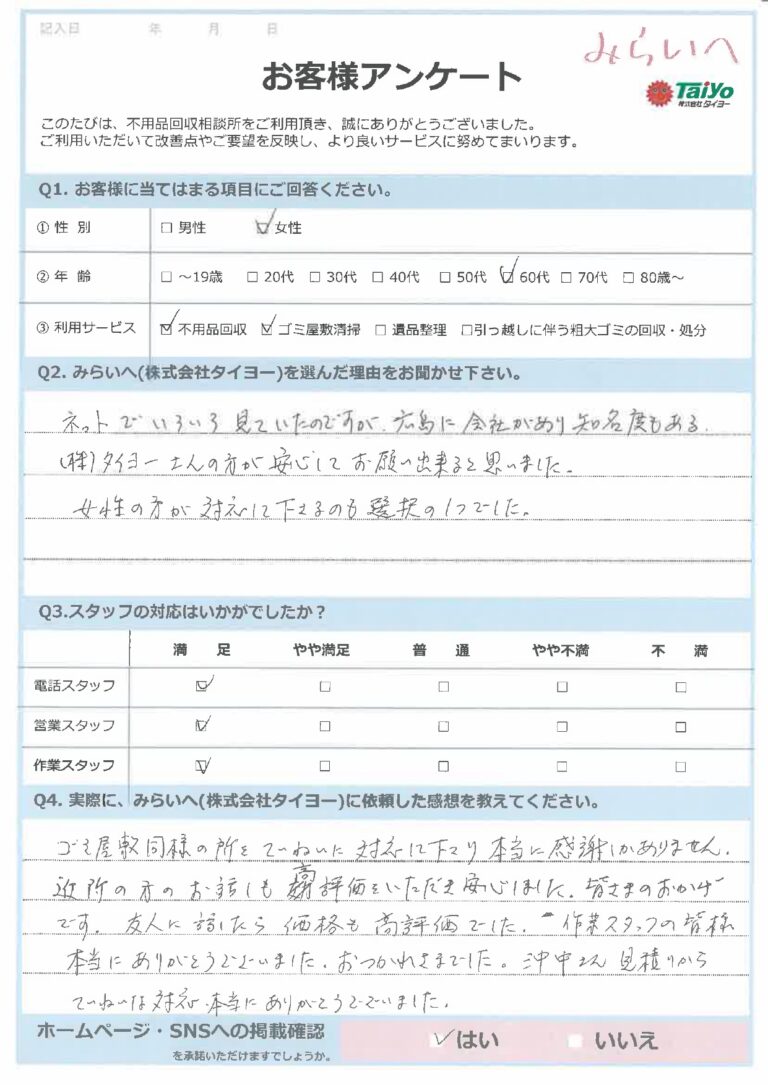 記入日 年 月 日
みらいへ
お客様アンケート
Taiyo
株式会社タイヨー
このたびは、不用品回収相談所をご利用頂き、誠にありがとうございました。
ご利用いただいて改善点やご要望を反映し、より良いサービスに努めてまいります。
Q1. お客様に当てはまる項目にご回答ください。
①性 別 □男性 ☑女性
②年 齢 □～19歳 □20代 □30代 □40代 □50代 ☑60代 □70代 □80歳～
③利用サービス ☑不用品回収 ☑ゴミ屋敷清掃 □遺品整理 □引っ越しに伴う粗大ゴミの回収・処分
Q2. みらいへ(株式会社タイヨー)を選んだ理由をお聞かせ下さい。
ネットでいろいろ見ていたのですが、広島に会社があり知名度もある。
(株)タイヨーさんの方が安心してお願い出来ると思いました。
女性の方が対応して下さるのも選択の1つでした。
Q3.スタッフの対応はいかがでしたか？
満 足 やや満足 普 通 やや不満 不 満
電話スタッフ ☑ □ □ □ □
営業スタッフ ☑ □ □ □ □
作業スタッフ ☑ □ □ □ □
Q4. 実際に、みらいへ(株式会社タイヨー)に依頼した感想を教えてください。
ゴミ屋敷同様の所をていねいに対応して下さり本当に感謝しかありません。
近所の方のお話しも高評価をいただき安心しました。皆さまのおかげ
です。友人に話したら価格も高評価でした。作業スタッフの皆様
本当にありがとうございました。おつかれさまでした。沖中さん見積りから
ていねいな対応、本当にありがとうございました。
ホームページ・SNSへの掲載確認
を承諾いただけますでしょうか。
☑はい □いいえ